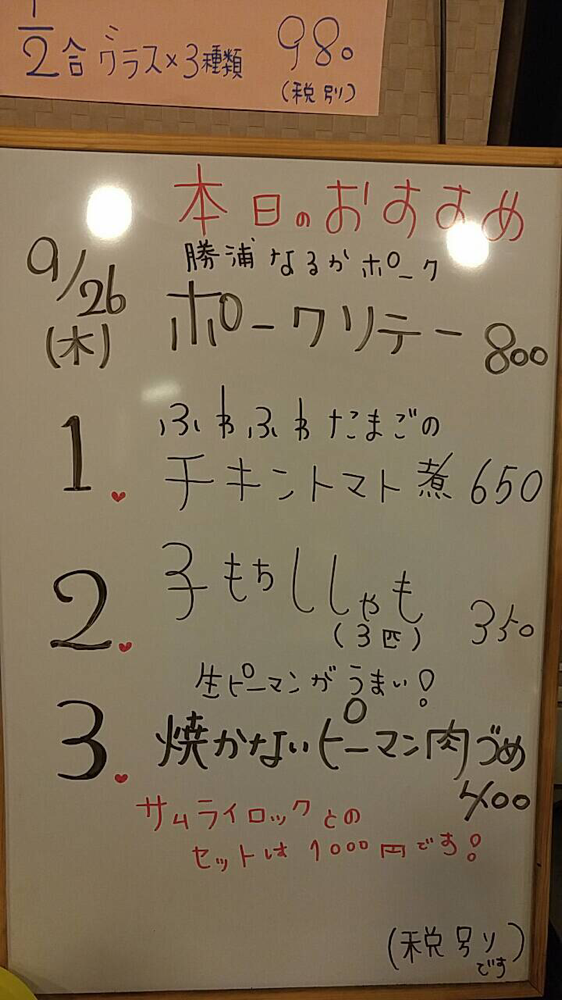 1/2合グラス×3種類 980
(税別)
本日のおすすめ
9/26
(木)
勝浦なるかポーク
ポークソテー 800
1. ふわふわたまごの
チキントマト煮 650
2. 子もちししゃも 350
(3匹)
生ピーマンがうまい!
3. 焼かないピーマン肉づめ
400
サムライロックとの
セットは1000円です!
(税別り
です)